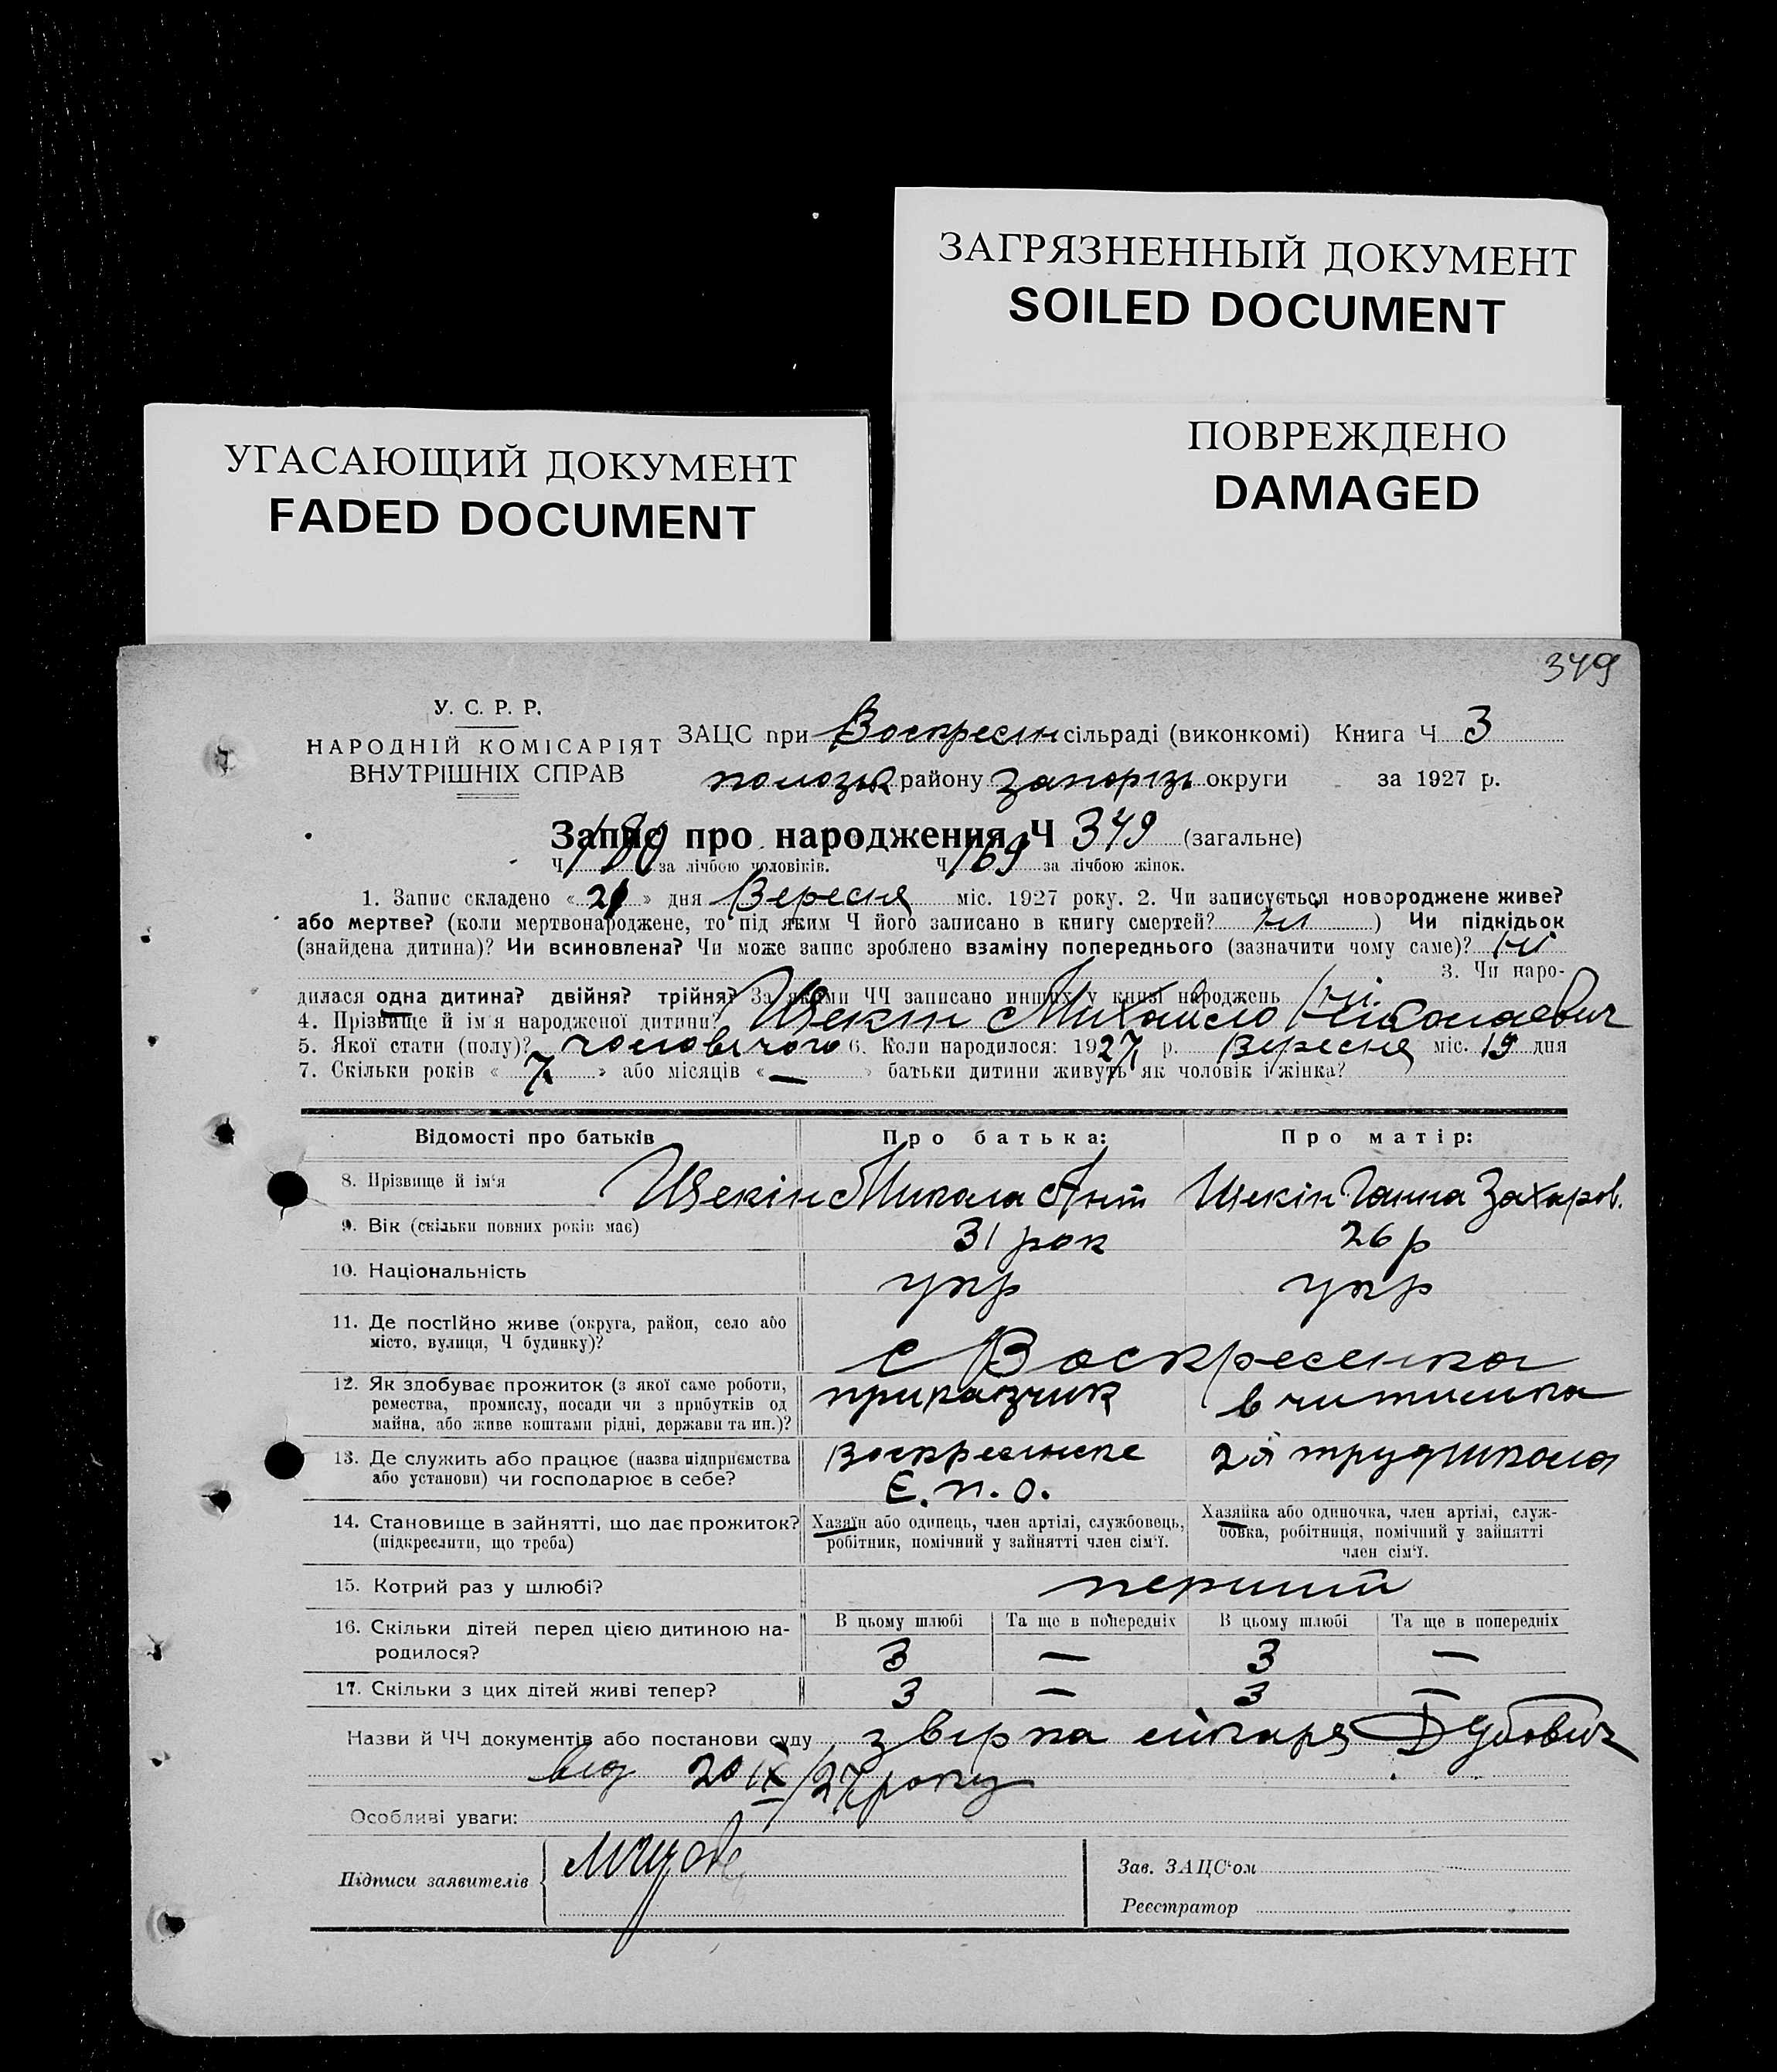 ЗАГРЯЗНЕННЫЙ ДОКУМЕНТ
SOILED DOCUMENT
ПОВРЕЖДЕНО
DAMAGED
УГАСАЮЩИЙ ДОКУМЕНТ
FADED DOCUMENT
349
У. С. Р. Р.
НАРОДНІЙ КОМІСАРІЯТ
ВНУТРІШНІХ СПРАВ
ЗАЦС при Воскресен сільраді (виконкомі) Книга Ч 3
пологзьк району запорізь округи за 1927 р.
Запис про народження Ч 349 (загальне)
Ч 180 за лічбою чоловіків. Ч 169 за лічбою жінок.
1. Запис складено « 21 » дня Вересня міс. 1927 року. 2. Чи записується новороджене живе?
або мертве? (коли мертвонароджене, то під яким Ч його записано в книгу смертей? ні ) Чи підкідьок
(знайдена дитина)? Чи всиновлена? Чи може запис зроблено взаміну попереднього (зазначити чому саме)? ні
3. Чи наро-
дилася одна дитина? двійня? трійня? За якими ЧЧ записано инших у книзі народжень ні.
4. Прізвище й ім'я народженої дитини? Щекін Михайло Николаевич
5. Якої стати (полу)? чоловічого 6. Коли народилося: 1927 р. Вересня міс. 19 дня
7. Скільки років « 7 » або місяців « — » батьки дитини живуть як чоловік і жінка?
Відомості про батьків Про батька: Про матір:
8. Прізвище й ім'я Щекін Микола Ант Щекін Ганна Захаров.
9. Вік (скільки повних років має) 31 рок 26 р
10. Національність укр укр
11. Де постійно живе (округа, район, село або
місто, вулиця, Ч будинку)? с Воскресенка
12. Як здобуває прожиток (з якої саме роботи,
ремества, промислу, посади чи з прибутків од
майна, або живе коштами рідні, держави та ин.)? приказчик вчителька
13. Де служить або працює (назва підприємства
або установи) чи господарює в себе? Воскресенське Є. п. о. 2я трудшкола
14. Становище в зайнятті, що дає прожиток?
(підкреслити, що треба)
Хазяїн або одинець, член артілі, службовець,
робітник, помічний у зайнятті член сім'ї.
Хазяйка або одиночка, член артілі, служ-
бовка, робітниця, помічний у зайнятті
член сім'ї.
15. Котрий раз у шлюбі? перший
16. Скільки дітей перед цією дитиною на-
родилося?
В цьому шлюбі Та ще в попередніх В цьому шлюбі Та ще в попередніх
3 — 3 —
17. Скільки з цих дітей живі тепер? 3 — 3 —
Назви й ЧЧ документів або постанови суду звірка лікаря Дубович
від 20 IX/27 року
Особливі уваги:
Підписи заявителів
Зав. ЗАЦС'ом
Реєстратор